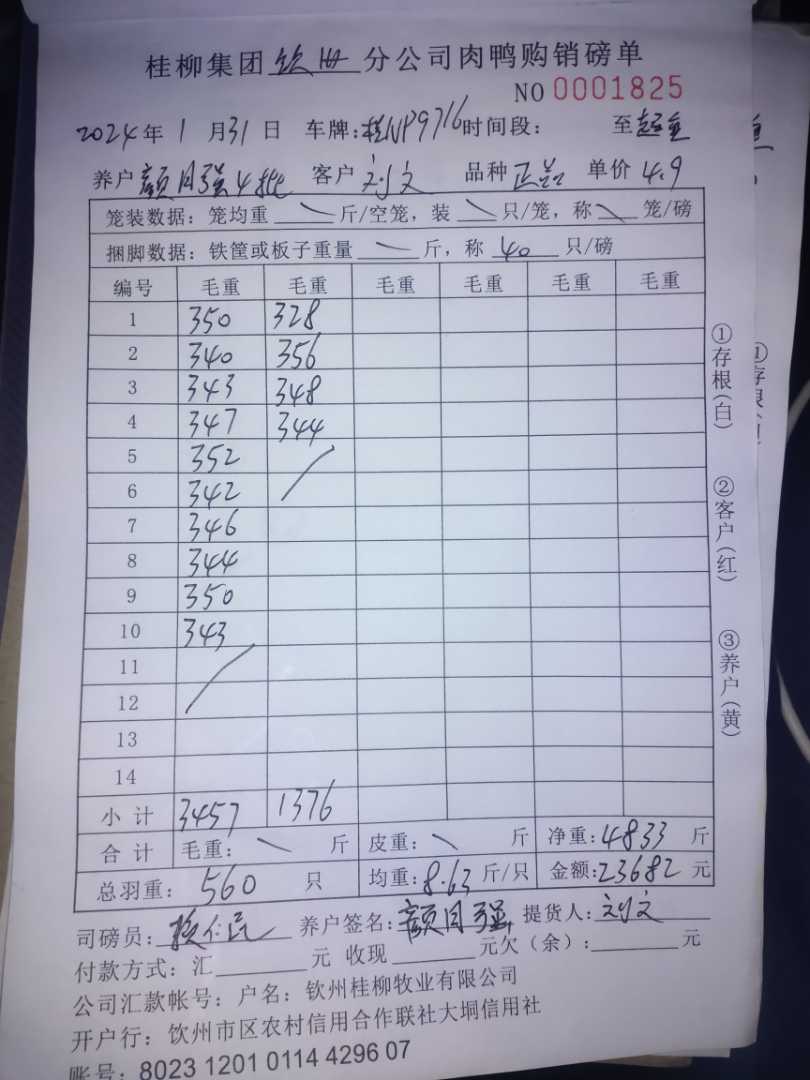 桂柳集团钦州分公司肉鸭购销磅单
NO 0001825
2024年1月31日 车牌:桂NP9716时间段: 至
养户颜月强4批 客户刘文 品种正品 单价4.9
笼装数据:笼均重 斤/空笼,装 只/笼,称 笼/磅
捆脚数据:铁筐或板子重量 斤,称 40 只/磅
编号 毛重 毛重 毛重 毛重 毛重 毛重
1 350 328
2 340 356
3 343 348
4 347 344
5 352
6 342
7 346
8 344
9 350
10 343
11
12
13
14
小计 3457 1376
合计 毛重: 斤 皮重: 斤 净重:4833斤
总羽重: 560 只 均重:8.63斤/只 金额:23682元
司磅员: 养户签名:颜月强 提货人:刘文
付款方式:汇 元 收现 元欠(余): 元
公司汇款帐号:户名:钦州桂柳牧业有限公司
开户行:钦州市区农村信用合作联社大垌信用社
账号:8023 1201 0114 4296 07
①存根(白) ②客户(红) ③养户(黄)